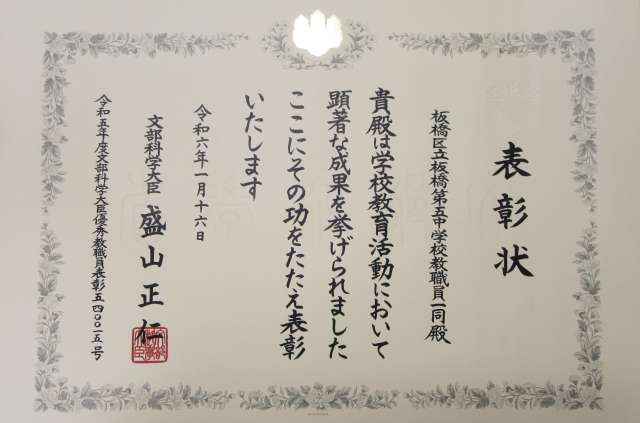 表彰状
板橋区立板橋第五中学校教職員一同殿
貴殿は学校教育活動において
顕著な成果を挙げられました
ここにその功をたたえ表彰
いたします
令和六年一月十六日
文部科学大臣 盛山正仁
令和五年度文部科学大臣優秀教職員表彰五四〇〇一五号